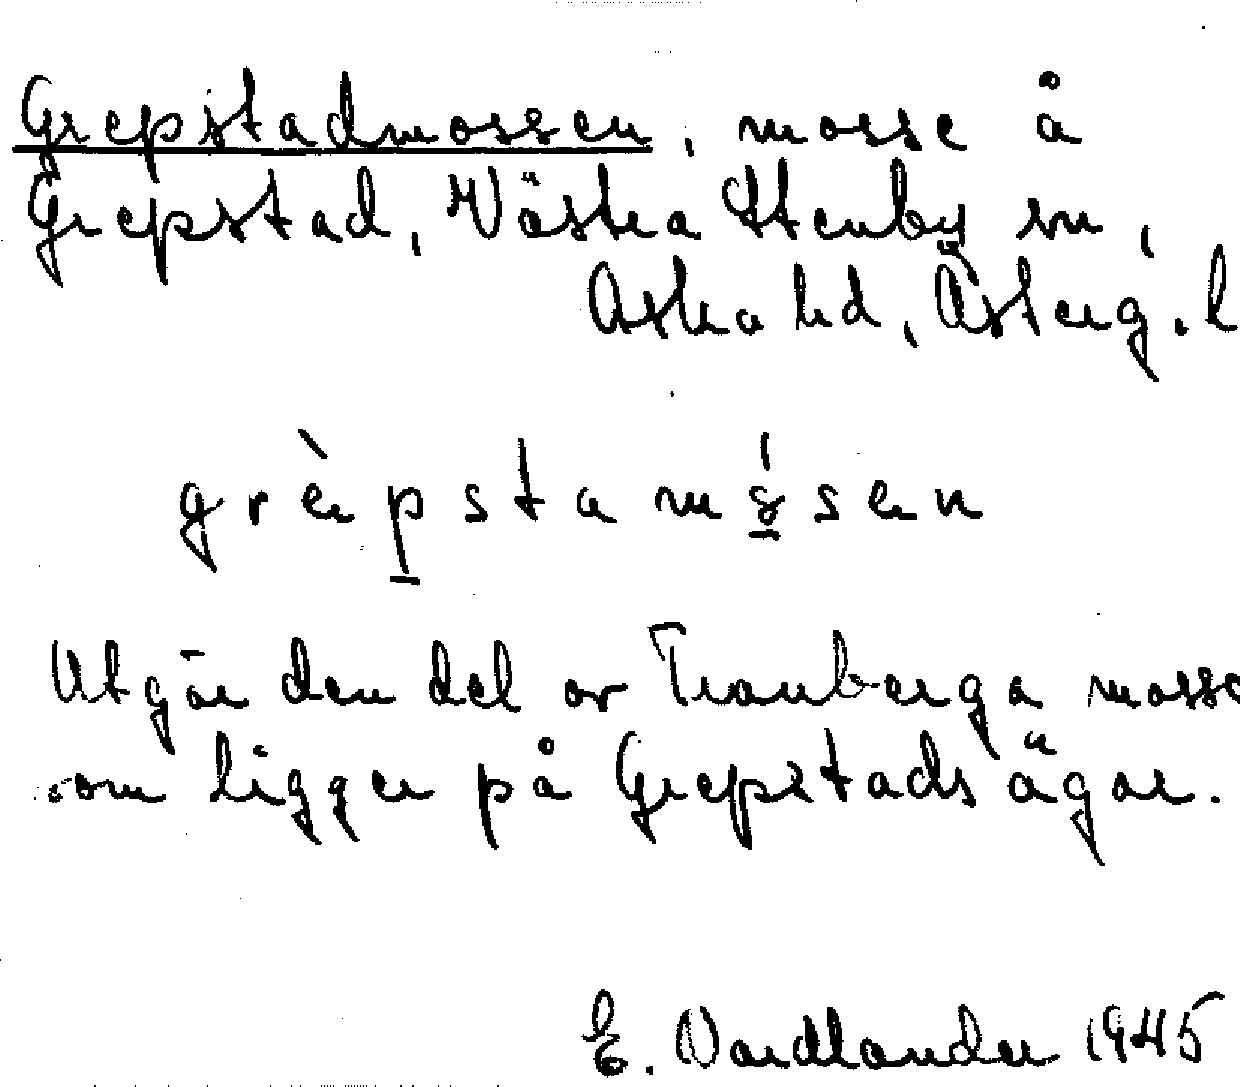 Grepstadmossen, mosse å
Grepstad, Västra Stenby sn,
Aska hd, Österg. l
grèpstamósen
Utgör den del av Tranberga mosse
som ligger på Grepstads ägor.
E. Vardlander 1945